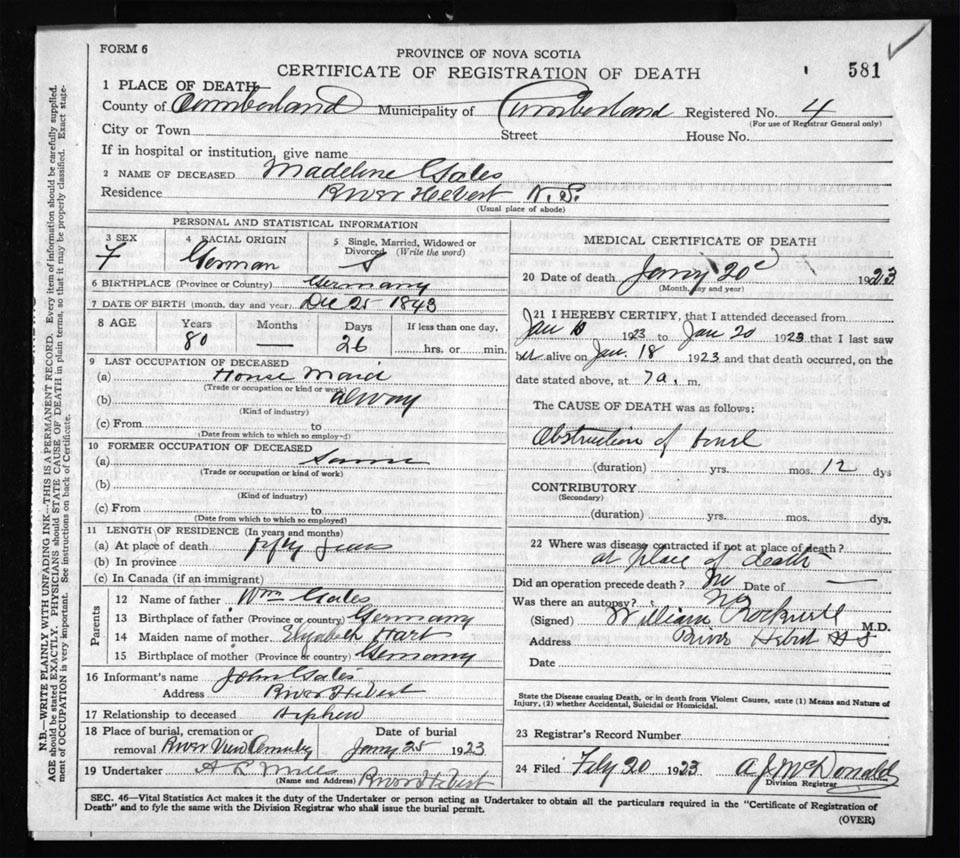 FORM 6
PROVINCE OF NOVA SCOTIA
CERTIFICATE OF REGISTRATION OF DEATH
581
1 PLACE OF DEATH
County of Cumberland Municipality of Cumberland Registered No. 4
(For use of Registrar General only)
City or Town Street House No.
If in hospital or institution, give name
2 NAME OF DECEASED Madeline Gales
Residence River Hebert N. S.
(Usual place of abode)
PERSONAL AND STATISTICAL INFORMATION
3 SEX 4 RACIAL ORIGIN 5 Single, Married, Widowed or Divorced (Write the word)
F German S
6 BIRTHPLACE (Province or Country) Germany
7 DATE OF BIRTH (month, day and year) Dec 25 1843
8 AGE Years Months Days If less than one day,
80 — 26 hrs. or min.
9 LAST OCCUPATION OF DECEASED
(a) House Maid
(Trade or occupation or kind or work)
(b)
(Kind of industry)
(c) From to
(Date from which to which so employed)
10 FORMER OCCUPATION OF DECEASED
(a) Same
(Trade or occupation or kind of work)
(b)
(Kind of industry)
(c) From to
(Date from which to which so employed)
11 LENGTH OF RESIDENCE (In years and months)
(a) At place of death fifty years
(b) In province
(c) In Canada (if an immigrant)
Parents
12 Name of father Wm Gales
13 Birthplace of father (Province or country) Germany
14 Maiden name of mother Elizabeth Hart
15 Birthplace of mother (Province or country) Germany
16 Informant's name John Gales
Address River Hebert
17 Relationship to deceased Nephew
18 Place of burial, cremation or removal Date of burial
River View Jany 25 1923
19 Undertaker A R Mills River Hebert
(Name and Address)
MEDICAL CERTIFICATE OF DEATH
20 Date of death Jany 20 1923
(Month, day and year)
21 I HEREBY CERTIFY, that I attended deceased from
Jan 1923 to Jan 20 1923 that I last saw
her alive on Jan. 18 1923 and that death occurred, on the
date stated above, at 7 a. m.
The CAUSE OF DEATH was as follows:
Obstruction of
(duration) yrs. mos. 12 dys
CONTRIBUTORY
(Secondary)
(duration) yrs. mos. dys.
22 Where was disease contracted if not at place of death?
at place of death
Did an operation precede death? No Date of —
Was there an autopsy? No
(Signed) William Rockwell M.D.
Address River Hebert N S
Date
State the Disease causing Death, or in death from Violent Causes, state (1) Means and Nature of
Injury, (2) whether Accidental, Suicidal or Homicidal.
23 Registrar's Record Number
24 Filed 20 1923 A J McDonald
Division Registrar
SEC. 46—Vital Statistics Act makes it the duty of the Undertaker or person acting as Undertaker to obtain all the particulars required in the "Certificate of Registration of
Death" and to fyle the same with the Division Registrar who shall issue the burial permit.
(OVER)
N.B.—WRITE PLAINLY WITH UNFADING INK—THIS IS A PERMANENT RECORD. Every item of information should be carefully supplied.
AGE should be stated EXACTLY. PHYSICIANS should STATE CAUSE OF DEATH in plain terms, so that it may be properly classified. Exact state-
ment of OCCUPATION is very important. See instructions on back of Certificate.